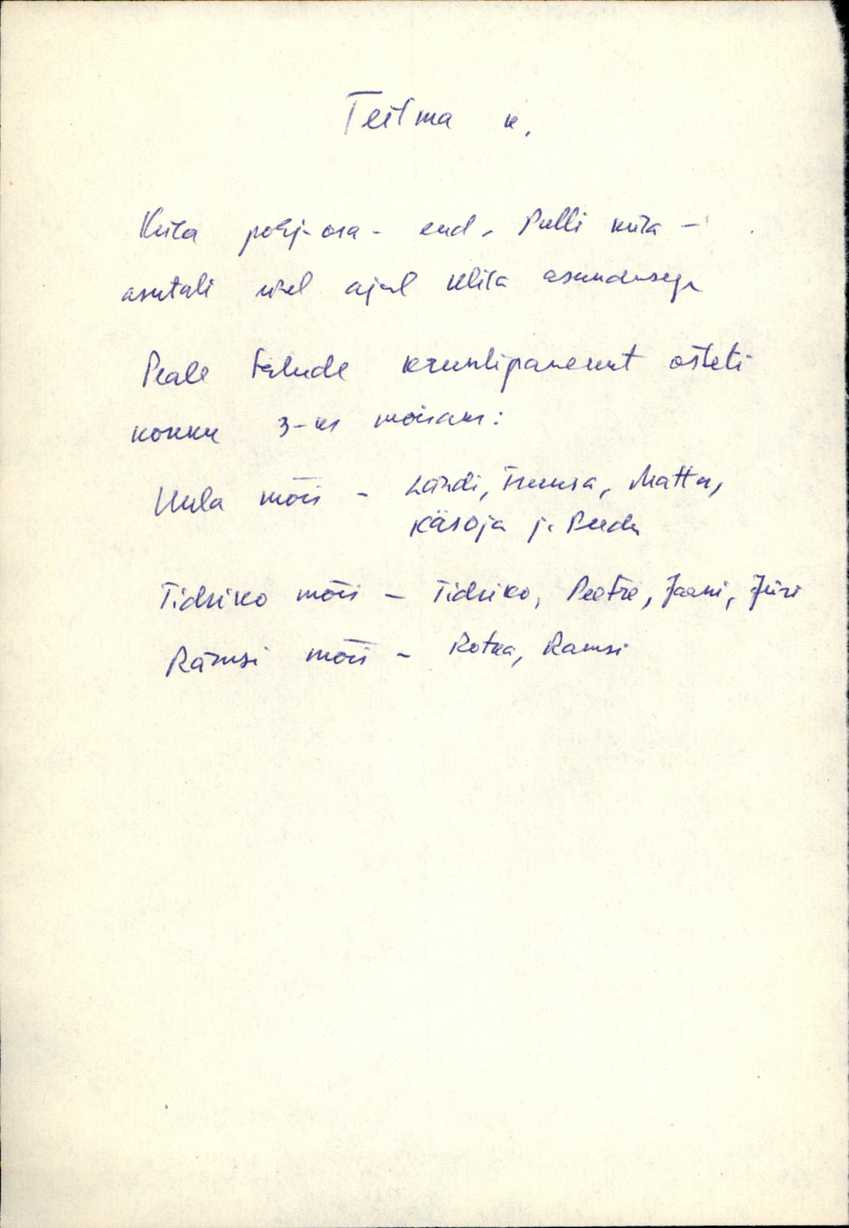 Teilma k.
Küla põhj-osa - end. Pulli küla -
asutati ühel ajal Klita asundusega
Peale talude kruntipanemist osteti
kokku 3-ks mõisaks:
mõis - Matta,
Käsoja ja
Tidriko mõis - Tidriko, Peetre, Jaani, Jüri
Rämsi mõis - Rotka, Ramsi